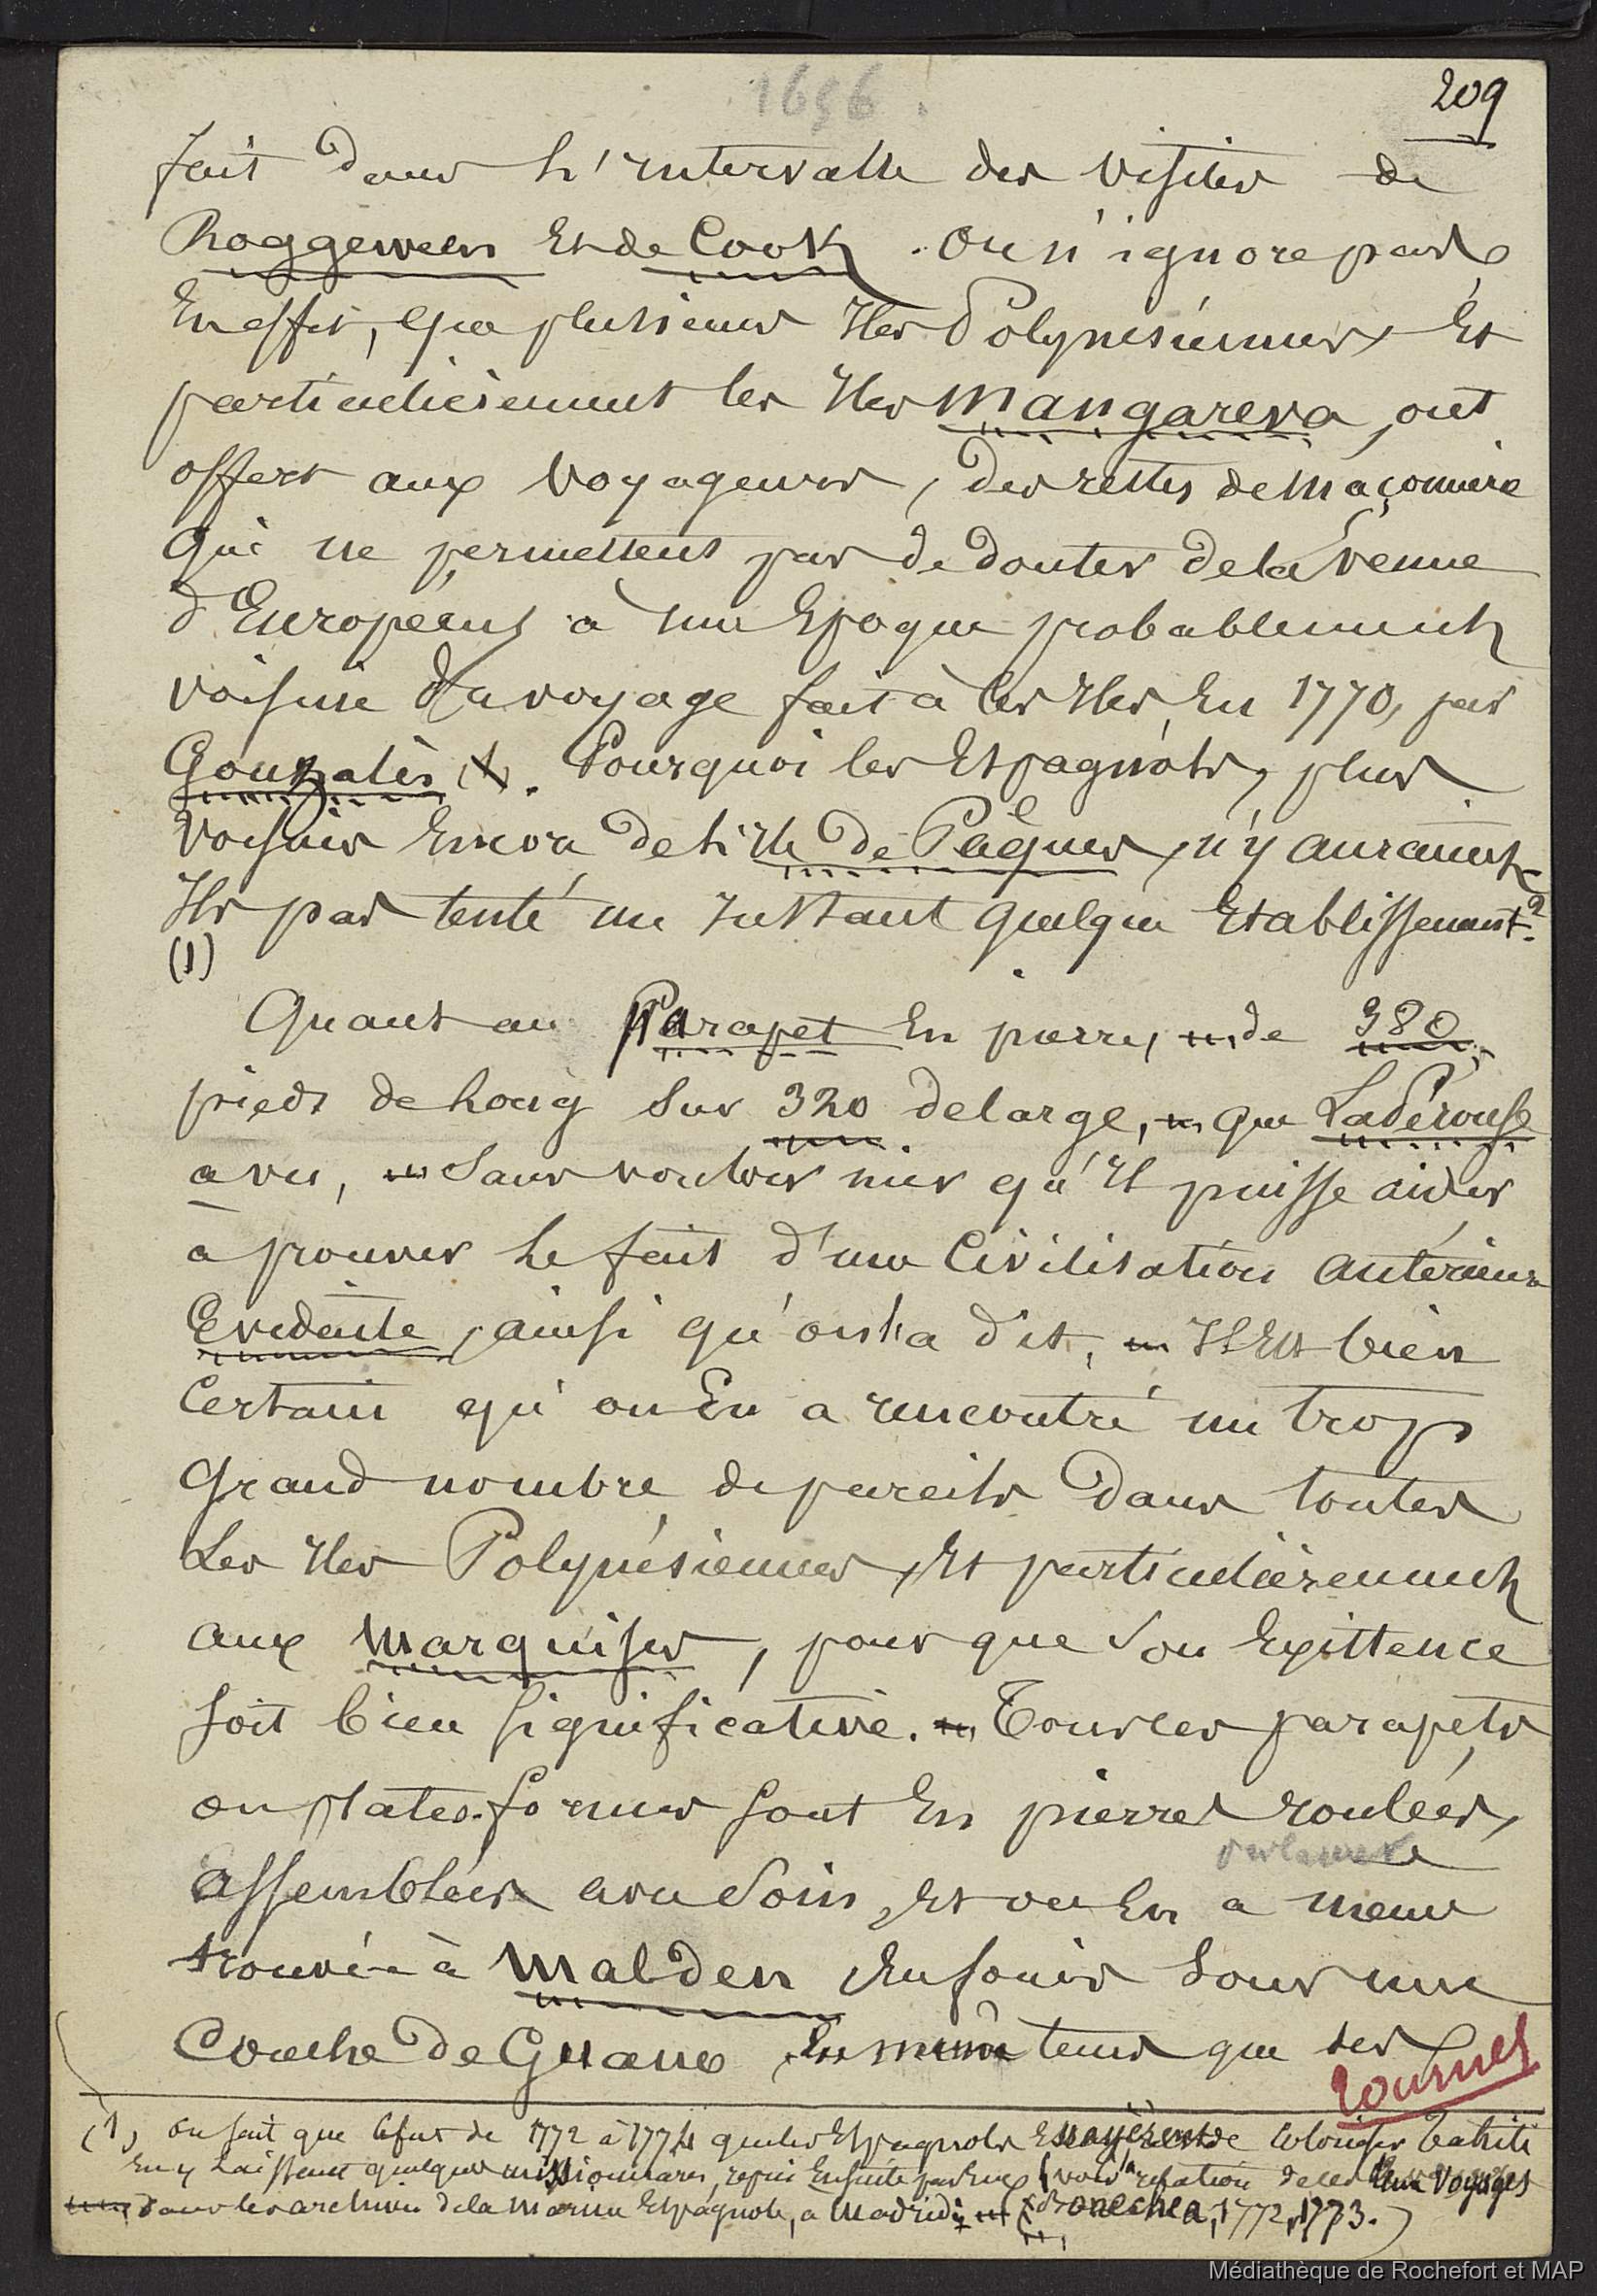 1656.
209
fait dans l'intervalle des visites de
Roggeween et de Cook. On n'ignore pas,
En effet, que plusieurs Iles Polynésiennes, Et
particulièrement les Iles Mangareva, ont
offert aux voyageurs, des restes de maçonnerie
qui ne permettent pas de douter de la venue
d'Européens à une Epoque probablement
voisine du voyage fait à ces Iles, En 1770, par
Gonzalès (1). Pourquoi les Espagnols, plus
voisins Encore de l'Ile de Pâques, n'y auraient-
Ils pas tenté un Instant quelque Etablissement?
(1)
Quant au Parapet En pierre, de 380
pieds de long sur 320 de large, que LaPérouse
a vu, sans vouloir nier qu'Il puisse aider
a prouver le fait d'une Civilisation antérieure
Evidente, ainsi qu'on l'a dit, Il Est bien
Certain qu'on En a rencontré un trop
Grand nombre de pareils dans toutes
Les Iles Polynésiennes, Et particulièrement
aux Marquises, pour que son Existence
soit bien significative. Tous ces parapets
ou plates-formes sont En pierres roulées,
assemblées avec soin, Et on En a même
trouvé à Malden Enfouis sous une
Couche de Guano En même temps que des
tournez
(1) on sait que ce fut de 1772 à 1774 que les Espagnols Essayèrent de Coloniser Tahiti
En y laissant quelques missionnaires, repris Ensuite par Eux (voir relation de ces deux voyages
dans les archives de la Marine Espagnole, a Madrid; (Bonechea, 1772, 1773.)
Médiathèque de Rochefort et MAP